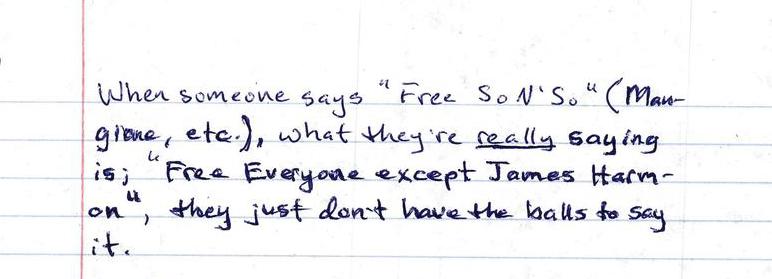 When someone says "Free So N' So" (Man-
gione, etc.), what they're really saying
is; "Free Everyone except James Harm-
on", they just don't have the balls to say
it.